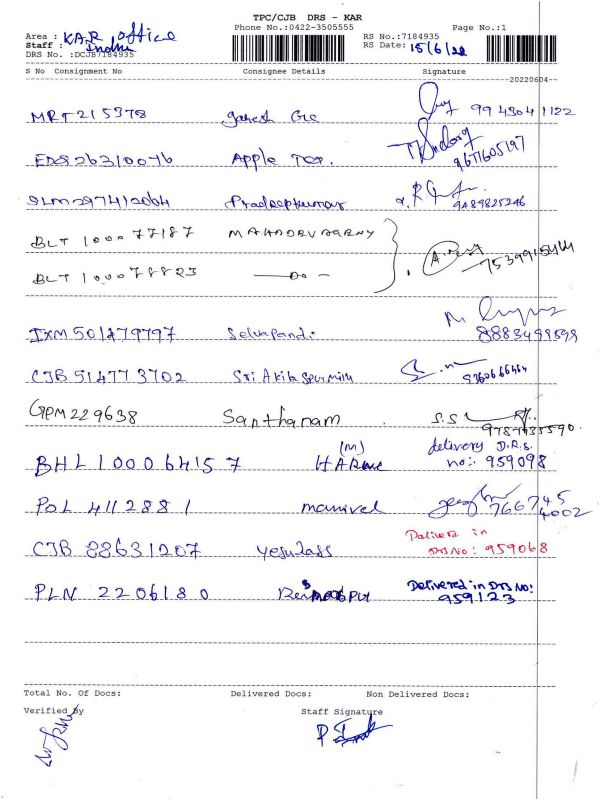 TPC/CJB DRS - KAR
Phone No.:0422-3505555
Page No.:1
Area : KAR office
Staff : Indhu
DRS No. :DCJB7184935
RS No.:7184935
RS Date: 15/6/22
S No Consignment No Consignee Details Signature
20220604
MRT215378 Ganesh Gre 9943041122
EDS26310076 Apple TCP. 9677605197
SLM297412064 Pradeepkumar 9489825246
BLT 100077187 MAHADEVAGRNY
BLT 100078823 —Do— 7539915444
IXM501479797 Selvapandi 8883499599
CJB514773702 Sri Akila Spurmilly 9360666464
GPM229638 Santhanam S.S 9787735590
BHL100064157 HARNE (M) delivery D.R.S. no:. 959098
POL 4112881 manivel 766745 4002
CJB 88631207 Yesudass Delivere in DRS No: 959068
PLN 2206180 Delivered in DRS No: 959123
Total No. Of Docs: Delivered Docs: Non Delivered Docs:
Verified By Staff Signature